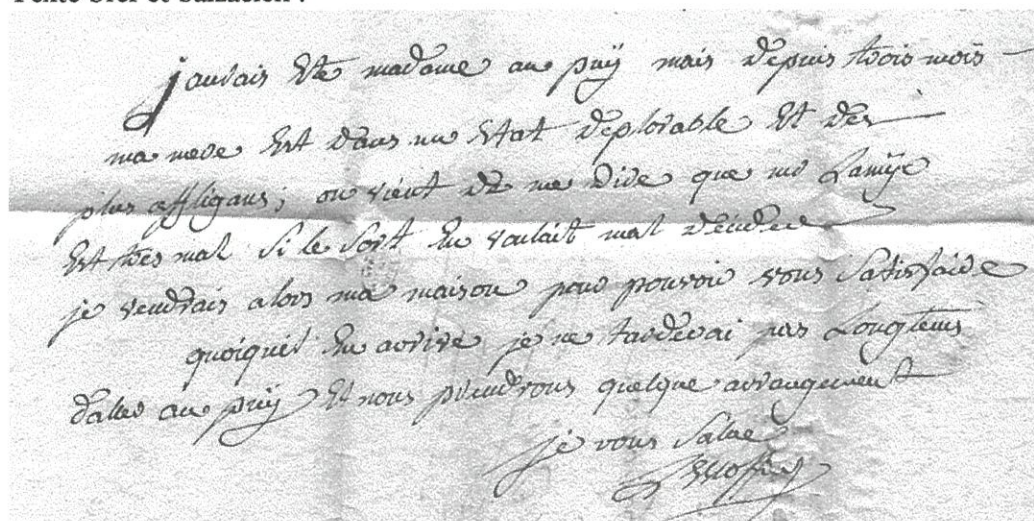 jaurais Eté madame au puÿ mais depuis trois mois
ma mere Est dans un Etat deplorable Et des
plus affligans; on vient de me dire que md Lamÿe
Est tres mal Si le Sort En voulait mal decider
je vendrais alors ma maison pour pouvoir vous Satisfaire
quoiquil En arrive je ne tarderai pas Longtems
daller au puÿ Et nous prendrons quelque arrangement
je vous Salue